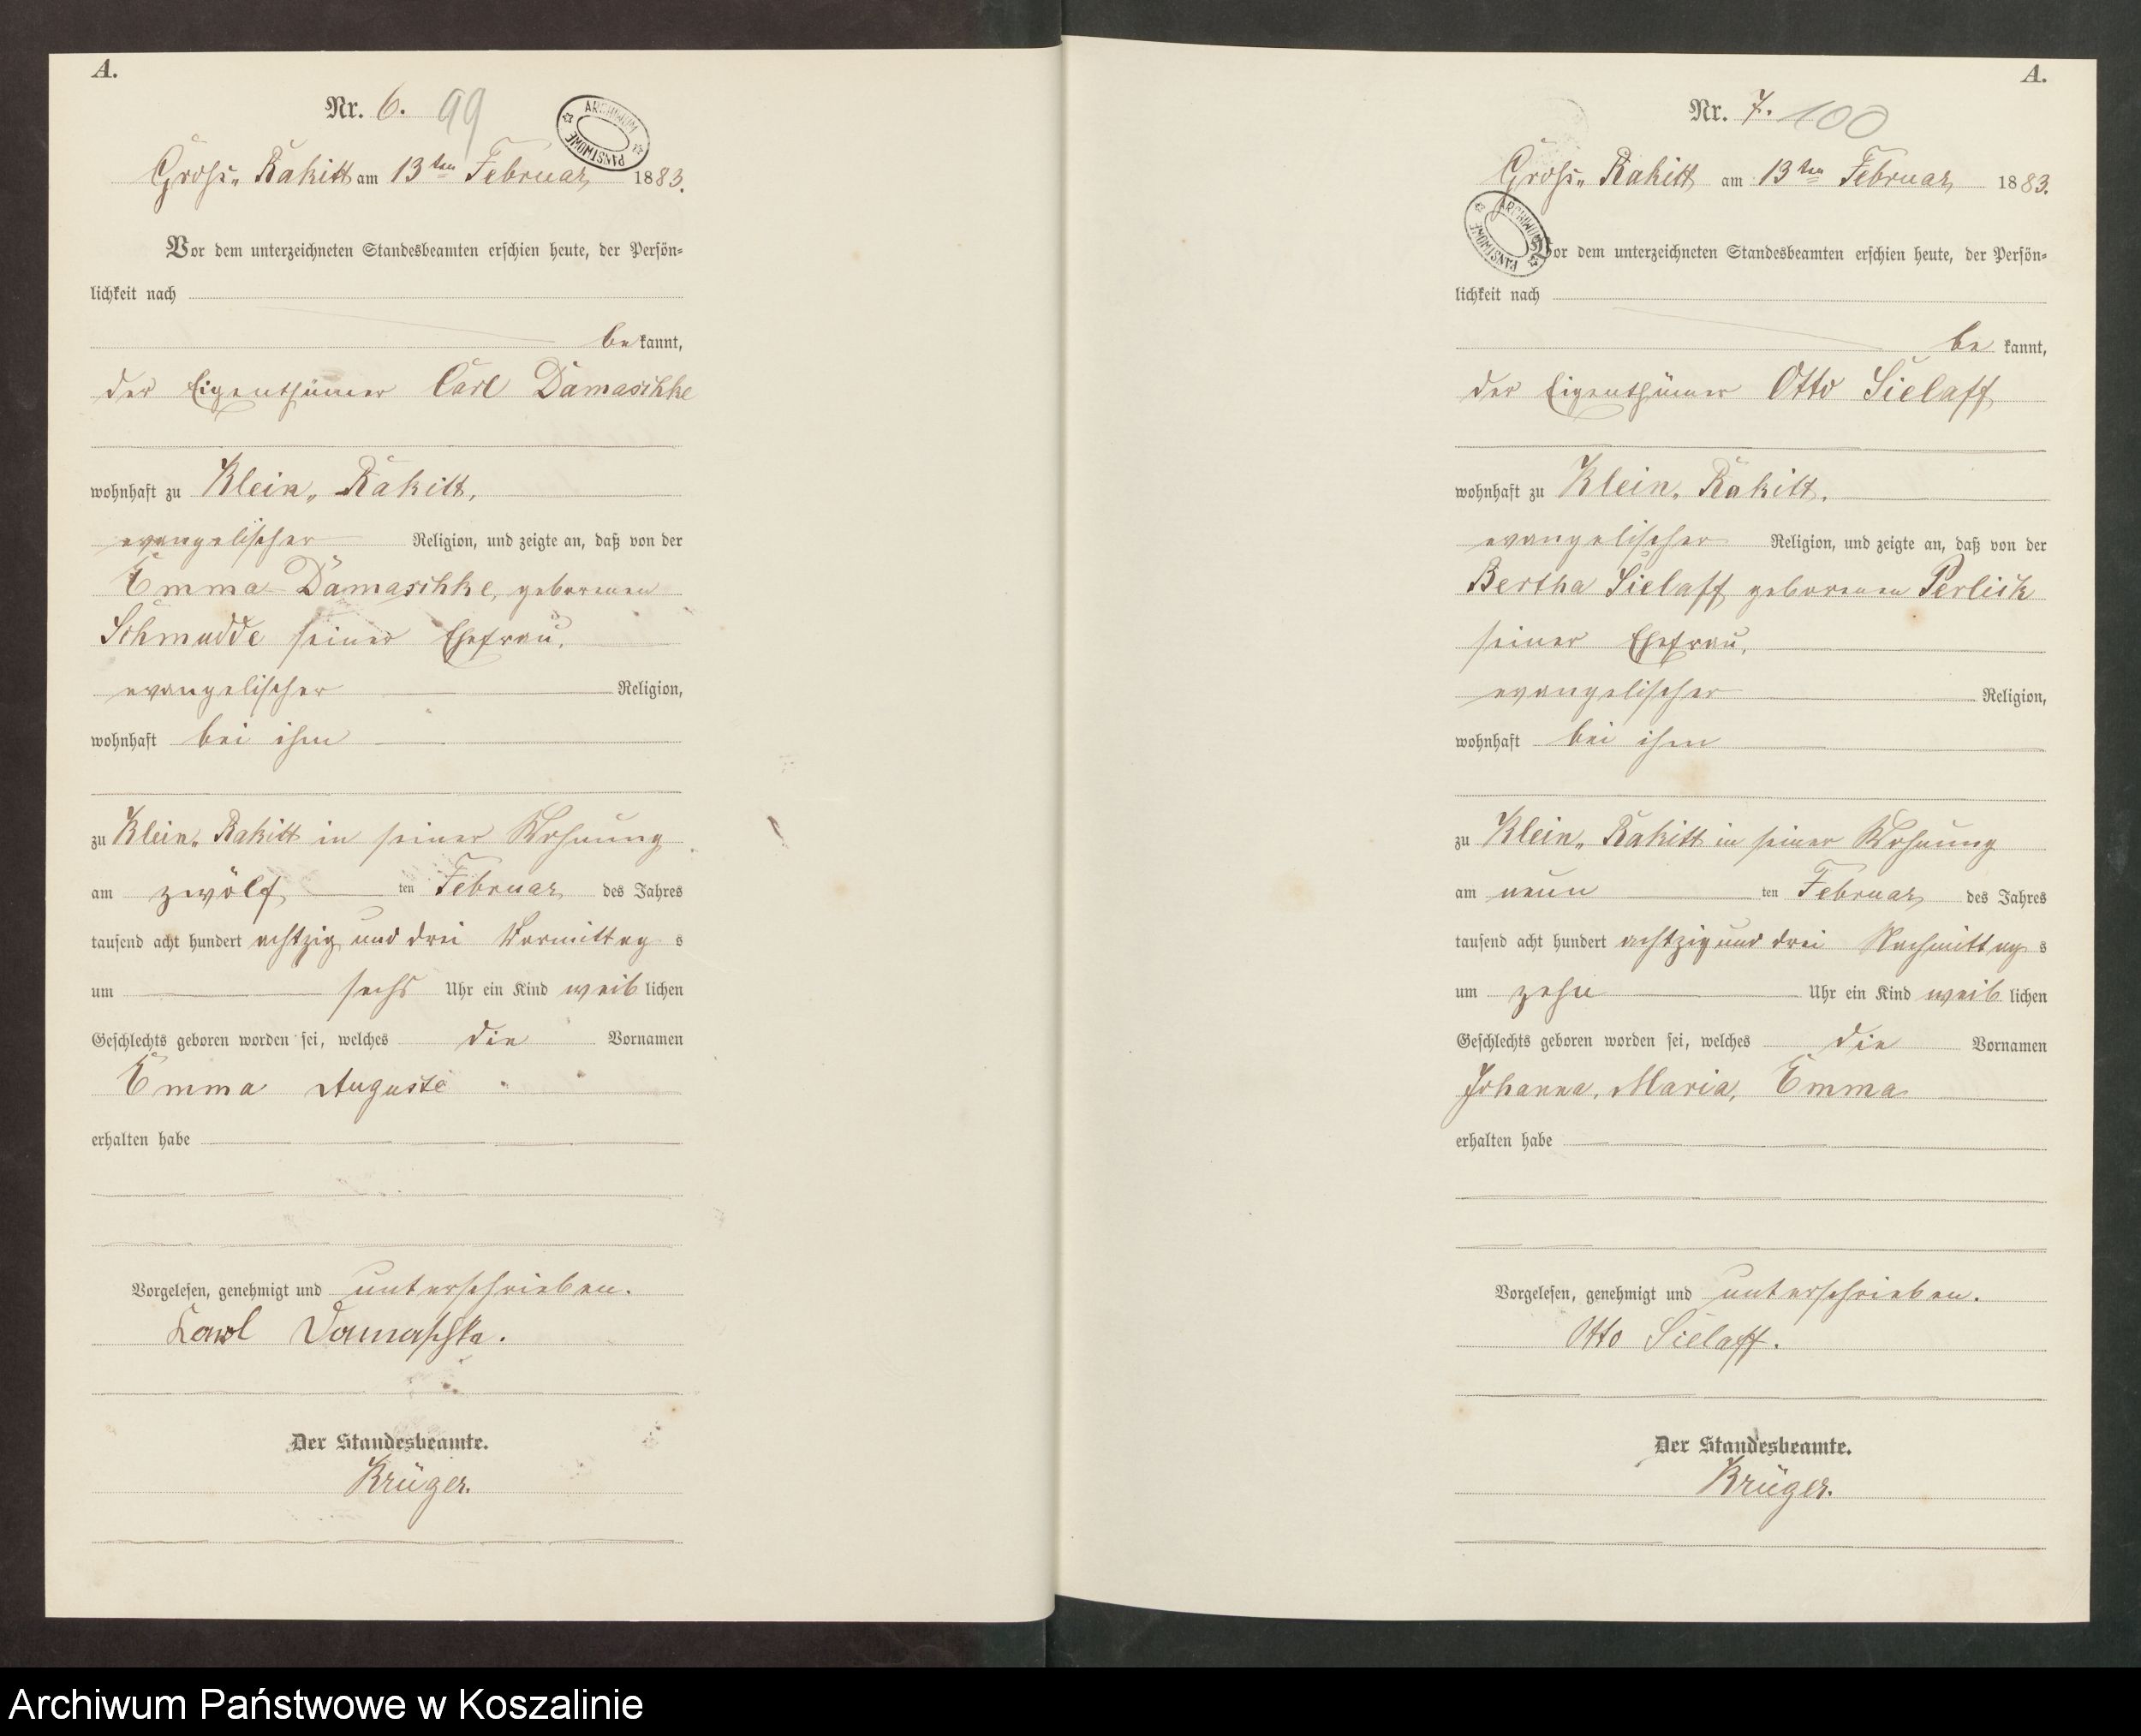 A.
Nr. 6. 99
ARCHIWUM PAŃSTWOWE
Gross„ Rakitt am 13ten Februar 1883.
Vor dem unterzeichneten Standesbeamten erschien heute, der Persön-
lichkeit nach
bekannt,
der Eigenthümer Carl Damaschke
wohnhaft zu Klein„ Rakitt,
evangelischer Religion, und zeigte an, daß von der
Emma Damaschke, geborenen
Schmudde seiner Ehefrau,
evangelischer Religion,
wohnhaft bei ihm
zu Klein„ Rakitt in seiner Wohnung
am zwölf ten Februar des Jahres
tausend acht hundert achtzig und drei Vormittag s
um sechs Uhr ein Kind weiblichen
Geschlechts geboren worden sei, welches die Vornamen
Emma Auguste
erhalten habe
Vorgelesen, genehmigt und unterschrieben.
Karl Damaschke.
Der Standesbeamte.
Krüger.
A.
Nr. 7. 100
Gross„ Rakitt am 13ten Februar 1883.
ARCHIWUM PAŃSTWOWE
Vor dem unterzeichneten Standesbeamten erschien heute, der Persön-
lichkeit nach
bekannt,
der Eigenthümer Otto Sielaff
wohnhaft zu Klein„ Rakitt,
evangelischer Religion, und zeigte an, daß von der
Bertha Sielaff geborenen Perlick
seiner Ehefrau,
evangelischer Religion,
wohnhaft bei ihm
zu Klein„ Rakitt in seiner Wohnung
am neun ten Februar des Jahres
tausend acht hundert achtzig und drei Nachmittag s
um zehn Uhr ein Kind weiblichen
Geschlechts geboren worden sei, welches die Vornamen
Johanna, Maria, Emma
erhalten habe
Vorgelesen, genehmigt und unterschrieben.
Otto Sielaff.
Der Standesbeamte.
Krüger.
Archiwum Państwowe w Koszalinie